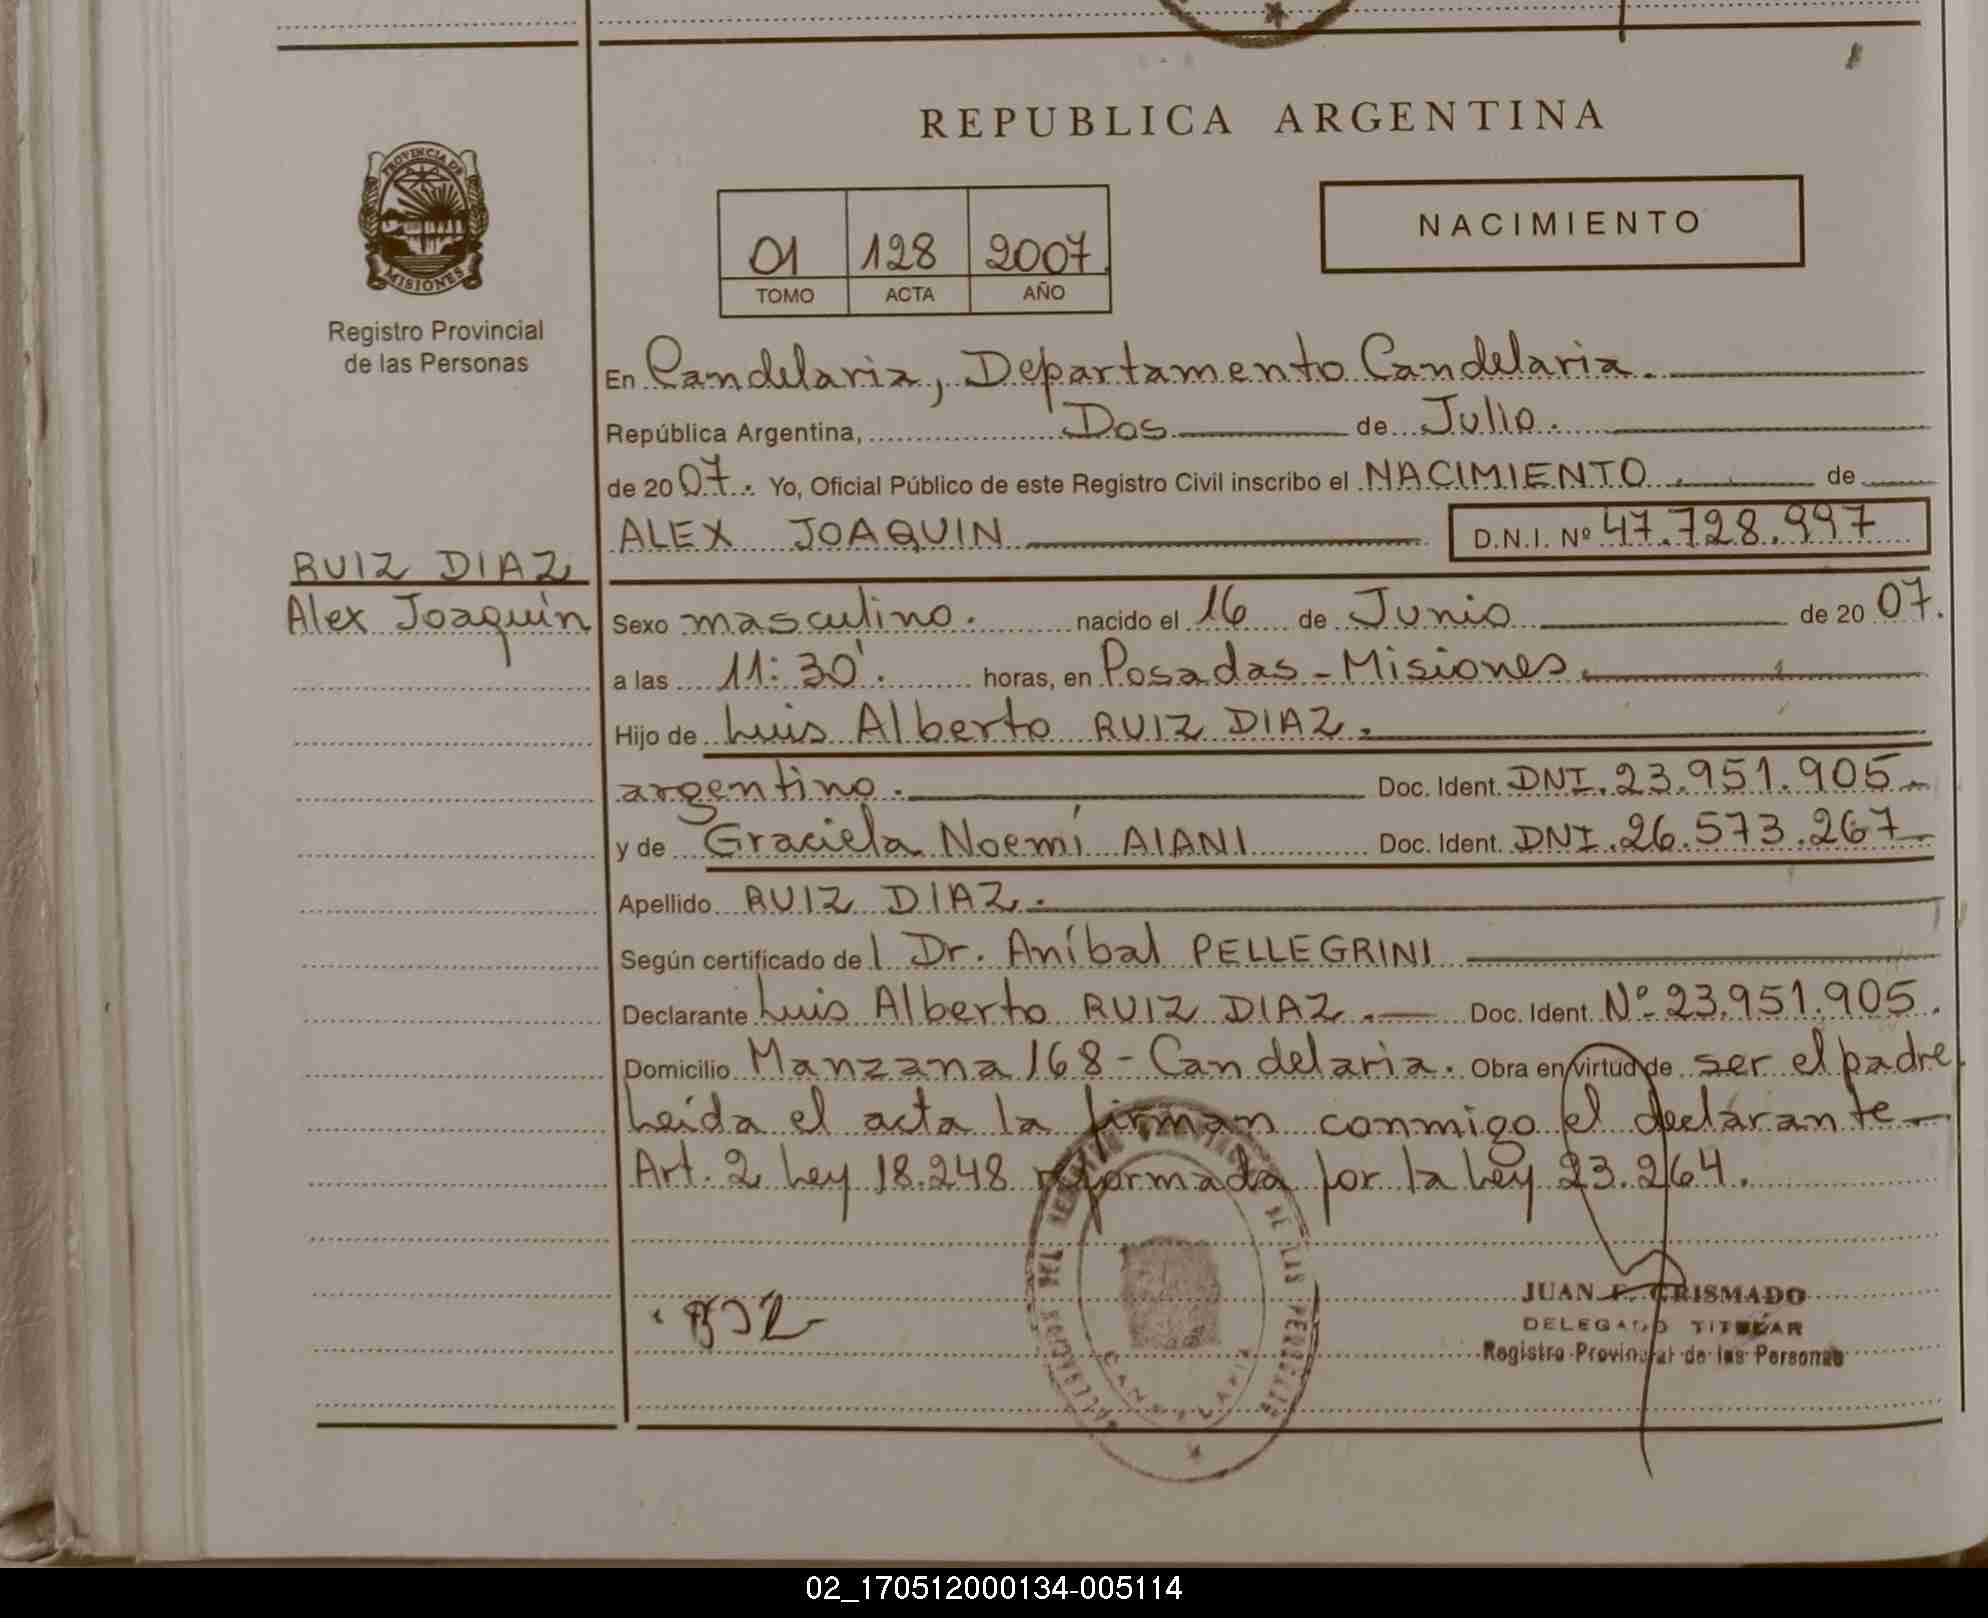 REPUBLICA ARGENTINA
PROVINCIA DE
MISIONES
Registro Provincial
de las Personas
NACIMIENTO
01 128 2007
TOMO ACTA AÑO
En Candelaria, Departamento Candelaria.
República Argentina, Dos de Julio.
de 2007. Yo, Oficial Público de este Registro Civil inscribo el NACIMIENTO. de
ALEX JOAQUIN D.N.I. Nº 47.728.997
RUIZ DIAZ
Alex Joaquín
Sexo masculino. nacido el 16 de Junio de 2007.
a las 11:30'. horas, en Posadas - Misiones.
Hijo de Luis Alberto RUIZ DIAZ.
argentino. Doc. Ident. DNI. 23.951.905
y de Graciela Noemí AIANI Doc. Ident. DNI. 26.573.267
Apellido RUIZ DIAZ.
Según certificado del Dr. Aníbal PELLEGRINI
Declarante Luis Alberto RUIZ DIAZ. Doc. Ident. Nº 23.951.905.
Domicilio Manzana 168 - Candelaria. Obra en virtud de ser el padre
Leída el acta la firman conmigo el declarante
Art. 2 Ley 18.248 reformada por la Ley 23.264.
JUAN F. CRISMADO
DELEGADO TITULAR
Registro Provincial de las Personas
DE LAS PERSONAS
CANDELARIA
02_170512000134-005114